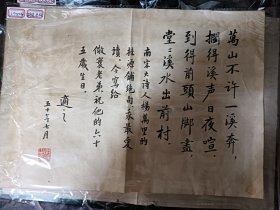 萬山不許一溪奔，
攔得溪声日夜喧．
到得前頭山脚盡，
堂〻溪水出前村．
南宋大詩人楊萬里的
桂源舖絕句我最愛
讀，今寫給
儆寰老弟，祝他的六十
五歲生日．
適之
五十年七月